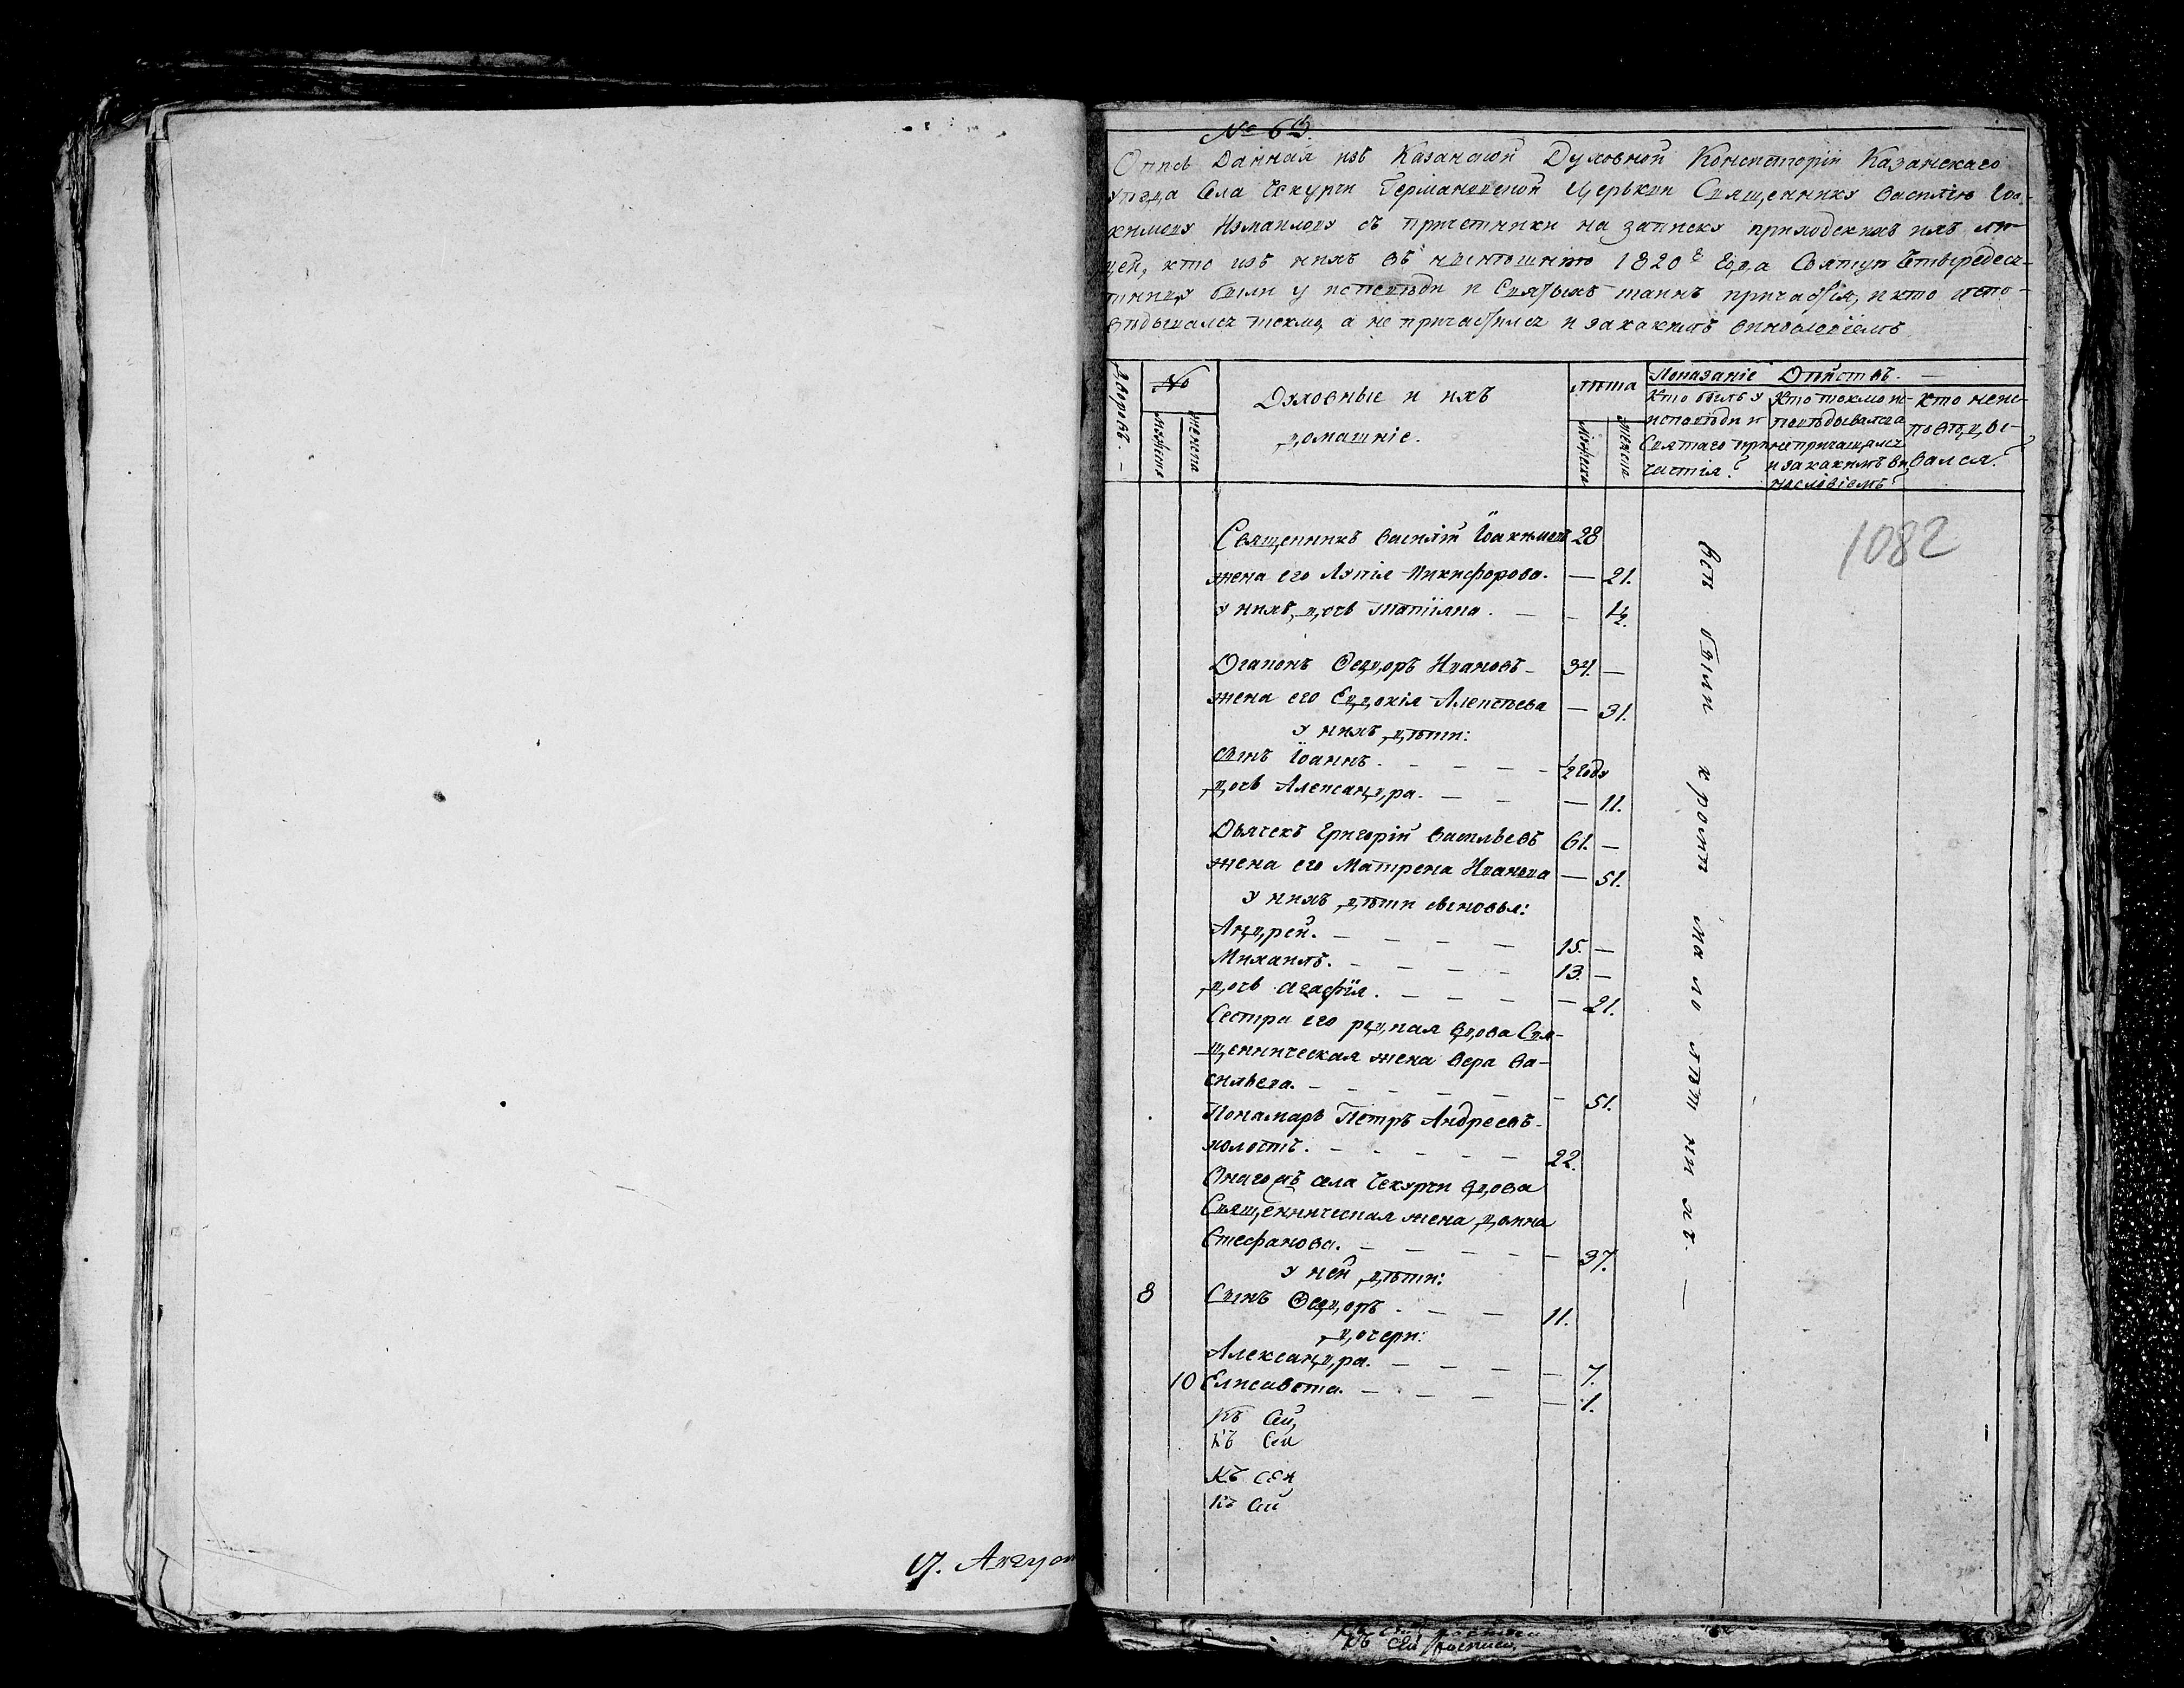 № 69.
Опись Данная изъ Казанской Духовной Консисторіи Казанскаго
уѣзда Села Чекурчи Германовской Церькви Священнику Василію Іоа-
кимову Измаилову съ причетники на записку приходскихъ ихъ лю-
дей, кто изъ нихъ въ нынѣшнѣю 1820 года Святую Четыредеся-
тницу были у исповѣди и Святыхъ таинъ причастія, и кто испо-
вѣдывался токмо, а не причастился и за какимъ винословіемъ
Дворовъ. —
№
мужеска
женска
Духовные и ихъ
домашніе.
лѣта
мужеска
женска
Показаніе Дѣйствъ. —
Кто былъ у
исповѣди и
Святаго при-
частія?
Кто токмо ис-
повѣдывался а
не причащался
и за какимъ ви-
нословіемъ?
Кто неис-
повѣдыв-
вался?
1082
Священникъ Василій Іоакимовъ 28
жена его Лукія Никифорова. — 21.
у нихъ дочь Татіяна. — — 1/2.
Діаконъ Ѳедоръ Ивановъ — 34. —
жена его Евдокія Алексѣева — 31.
у нихъ дѣти:
сынъ Іоаннъ. — — — — 1/2 году
дочь Александра. — — — 11.
Дьячекъ Григорій Васильевъ 61. —
жена его Матрена Иванова — 51.
у нихъ дѣти сыновья:
Андрей. — — — — 15. —
Михаилъ. — — — — 13. —
дочь Агафія. — — — — 21.
Сестра его родная вдова Свя-
щенническая жена Вера Ва-
сильева. — — — — — 51.
Пономарь Петръ Андреевъ
холостъ. — — — — — 22.
Онагожъ села Чекурчи вдова
Священническая жена Домна
Стефанова. — — — — — 37.
у ней дѣти:
8 Сынъ Ѳедоръ. — — 11.
дочери:
Александра. — — — — 7.
10 Елисавета. — — — — 1.
Къ Сей,
къ Сей
Къ сей
къ Сей
Всѣ были кромѣ малолѣтнихъ. —
къ Сей росписи